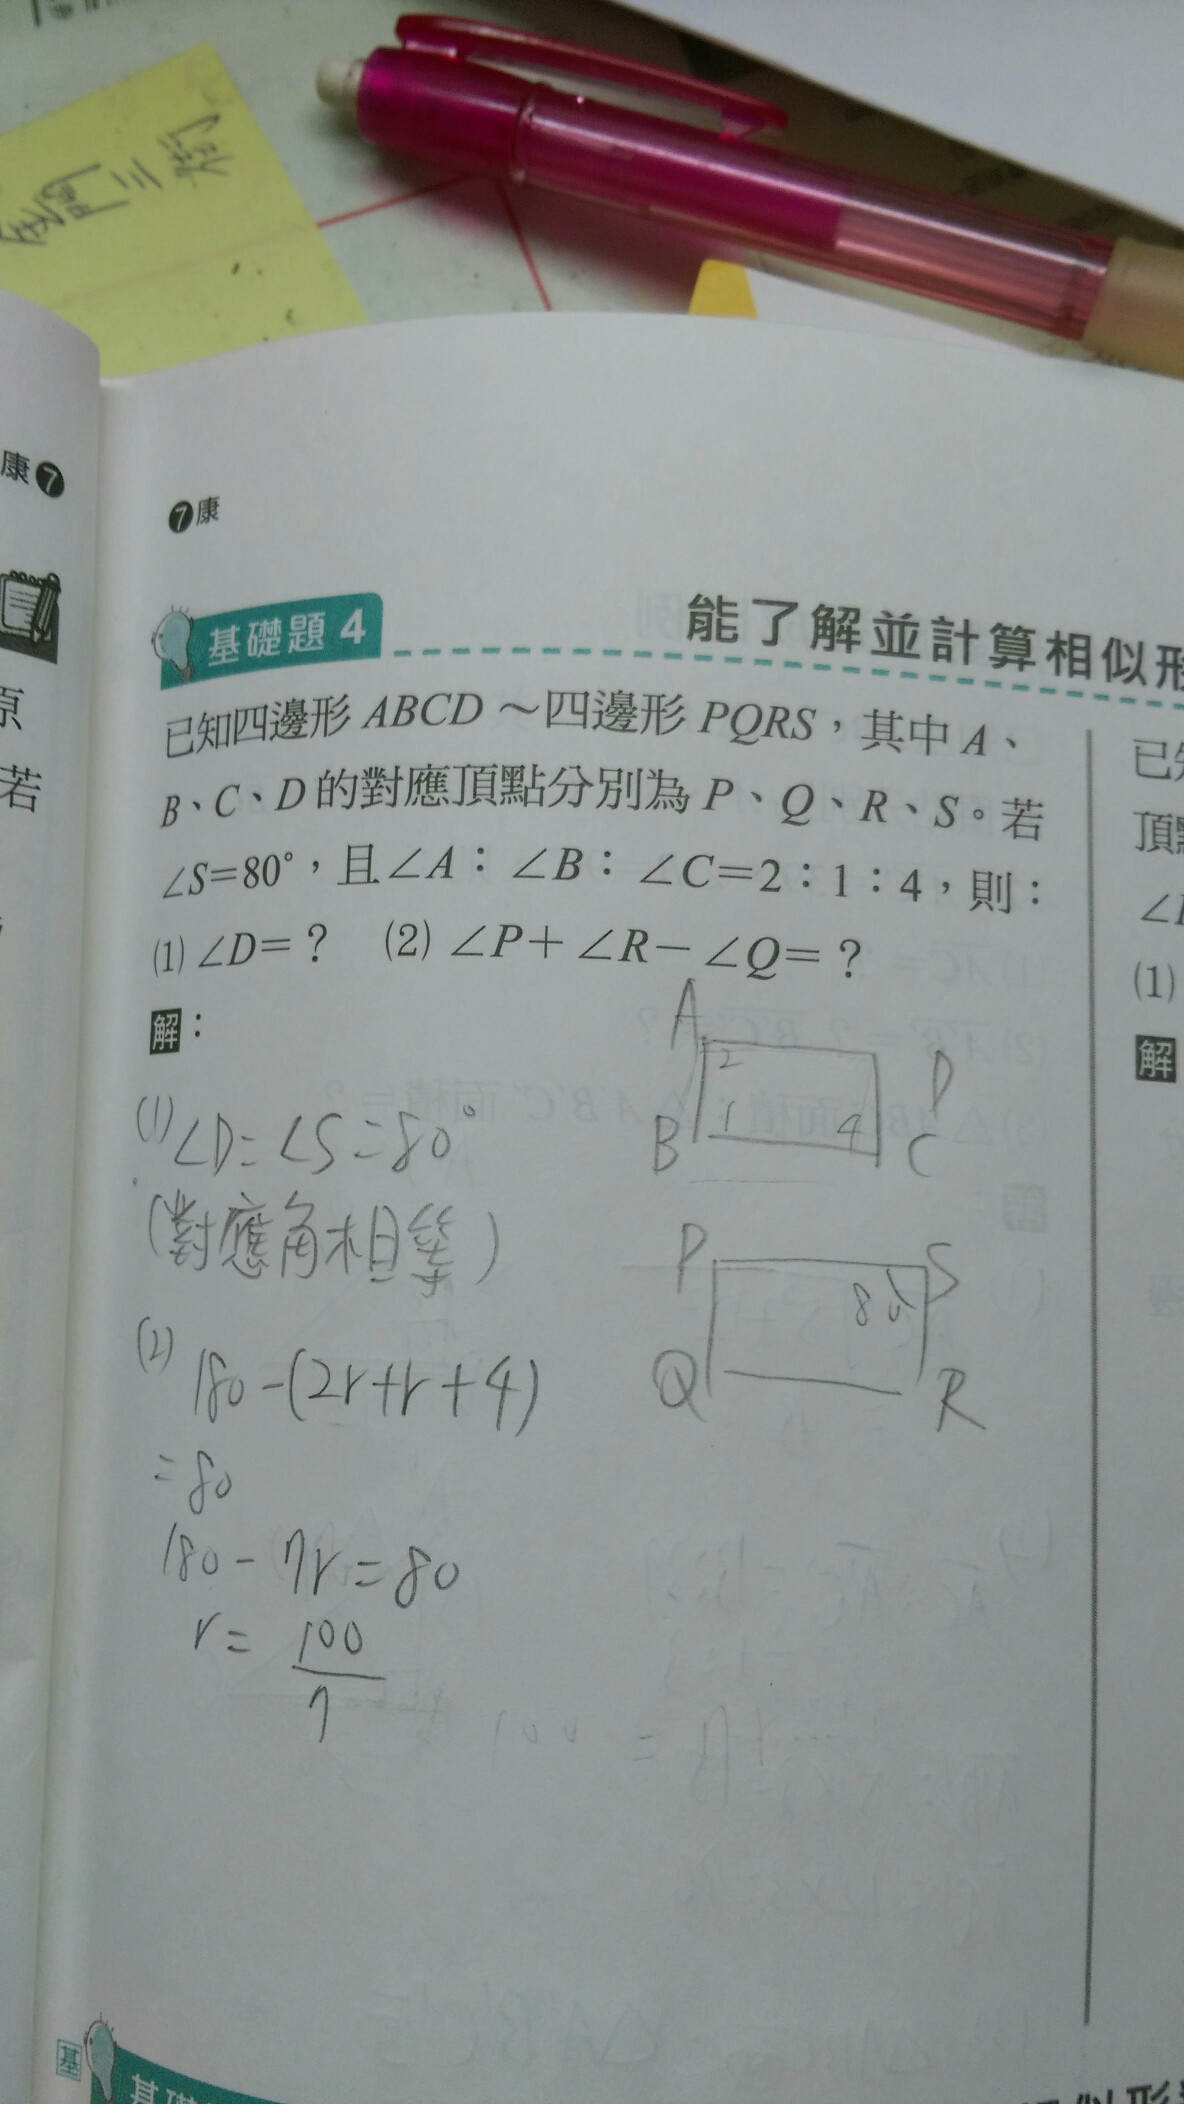 康7
7康
原
若
基礎題4
能了解並計算相似形
已知四邊形ABCD～四邊形PQRS，其中A、
B、C、D的對應頂點分別為P、Q、R、S。若
∠S=80°，且∠A：∠B：∠C=2：1：4，則：
(1) ∠D=？ (2) ∠P+∠R-∠Q=？
解：
(1)∠D=∠S=80°
(對應角相等)
(2)
180-(2r+r+4)
=80
180-7r=80
r=100/7
A
2
D
B
1
4
C
P
S
80
Q
R
已知
頂點
(1)
解
基
基礎
相似形